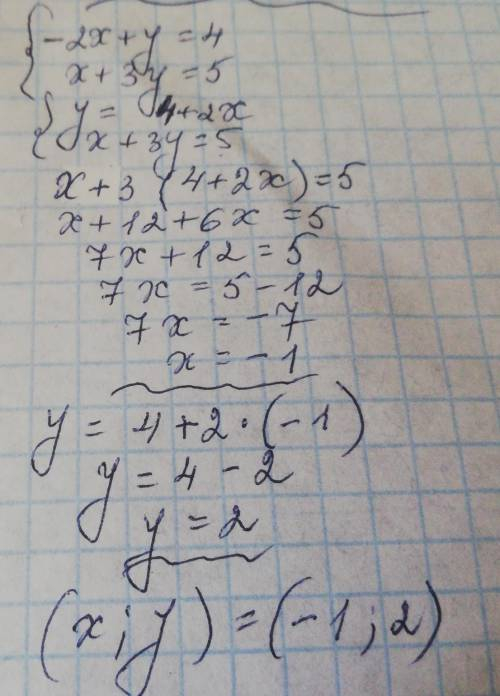 { -2x+y=4
x+3y=5
{ y= 4+2x
x+3y=5
x+3(4+2x)=5
x+12+6x=5
7x+12=5
7x=5-12
7x=-7
x=-1
y=4+2·(-1)
y=4-2
y=2
(x;y)=(-1;2)